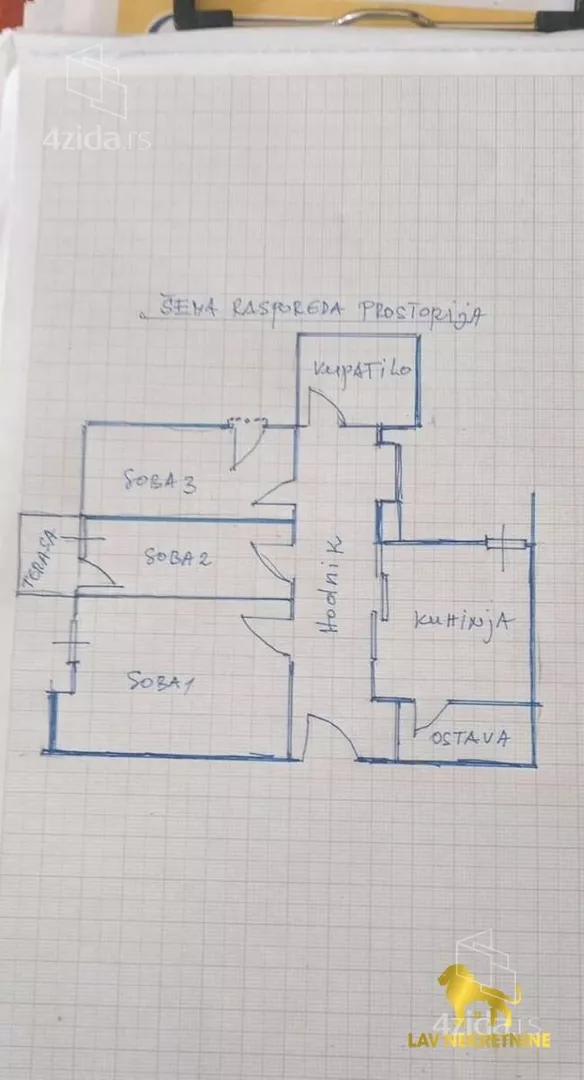 4zida.rs
ŠEMA RASPOREDA PROSTORIJA
KUPATILO
SOBA 3
TERASA
SOBA 2
Hodnik
KUHINJA
SOBA 1
OSTAVA
4zida.rs
LAV NEKRETNINE